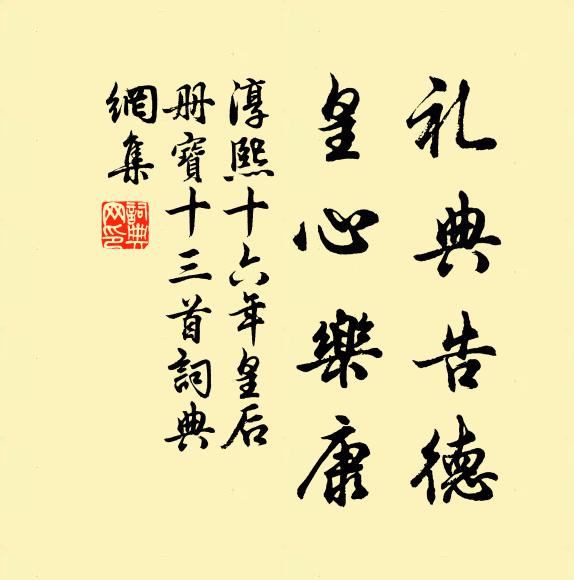 礼典告德
皇心樂康
淳熙十六年皇后
册寶十三首詞典
網集
詞典
网印